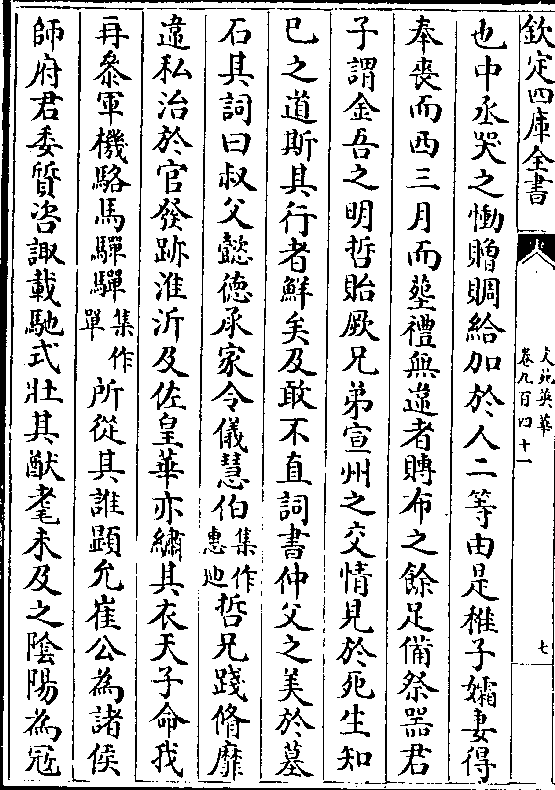 欽定四庫全書
文苑英華
卷九百四十一
七
也中丞哭之慟贈賵給加於人二等由是稚子孀妻得
奉喪而西三月而塟禮無違者賻布之餘足備祭器君
子謂金吾之明哲貽厥兄弟宣州之交情見於死生知
已之道斯其行者鮮矣及敢不直詞書仲父之美於墓
石其詞曰叔父懿德承家令儀慧伯集作惠迪哲兄踐脩靡
違私治於官發跡淮沂及佐皇華亦繡其衣天子命我
再叅軍機駱馬驒驒集作單所從其誰顕允崔公為諸侯
師府君委質咨諏載馳式壯其猷耄未及之陰陽為冦